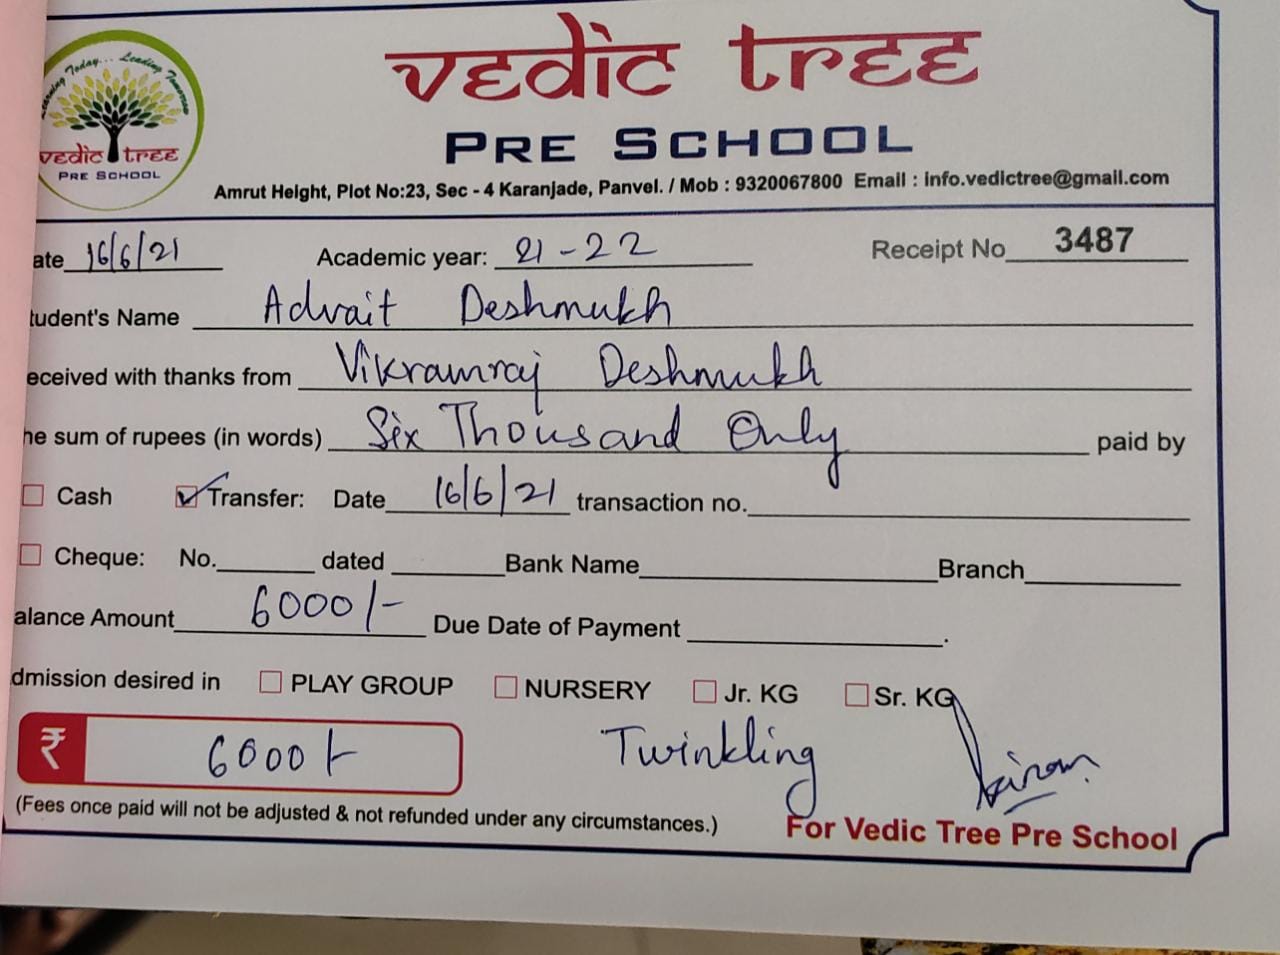 Learning Today... Leading Tomorrow
vedic tree
PRE SCHOOL
vedic tree
PRE SCHOOL
Amrut Height, Plot No:23, Sec - 4 Karanjade, Panvel. / Mob : 9320067800 Email : info.vedictree@gmail.com
ate 16/6/21 Academic year: 21-22 Receipt No 3487
tudent's Name Advait Deshmukh
eceived with thanks from Vikramraj Deshmukh
he sum of rupees (in words) Six Thousand Only paid by
Cash Transfer: Date 16/6/21 transaction no.
Cheque: No. dated Bank Name Branch
alance Amount 6000/- Due Date of Payment .
dmission desired in PLAY GROUP NURSERY Jr. KG Sr. KG
₹ 6000/- Twinkling
(Fees once paid will not be adjusted & not refunded under any circumstances.)
For Vedic Tree Pre School